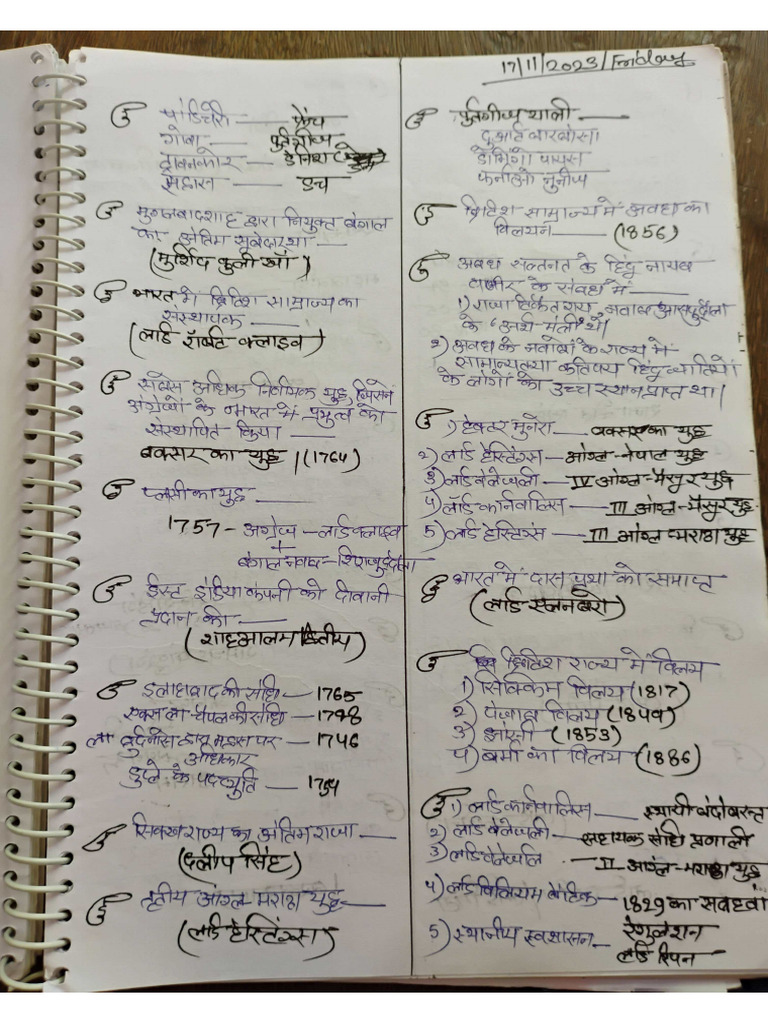 17/11/2023/Friday
पांडिचेरी — फ्रेंच
गोवा — पुर्तगीज
ट्रावनकोर — डेनिश
मद्रास — डच
मुगलबादशाह द्वारा नियुक्त बंगाल
का अंतिम सूबेदार था —
(मुर्शिद कुली खाँ)
भारत में ब्रिटिश साम्राज्य का
संस्थापक —
(लार्ड रॉबर्ट क्लाइव)
सबसे अधिक निर्णायक युद्ध, जिसने
अंग्रेजों के भारत में प्रभुत्व को
संस्थापित किया —
बक्सर का युद्ध |(1764)
प्लासी का युद्ध —
1757 - अंग्रेज - लार्ड क्लाइव
+
बंगाल नवाब - सिराजुद्दौला
ईस्ट इंडिया कंपनी को दीवानी
प्रदान की —
(शाहआलम द्वितीय)
इलाहाबाद की संधि — 1765
एक्स ला-शैपल की संधि — 1748
ला बुर्दनोस द्वारा मद्रास पर — 1746
अधिकार
डुप्ले के पदच्युति — 1754
सिक्ख राज्य का अंतिम राजा —
(दलीप सिंह)
तृतीय आंग्ल-मराठा युद्ध —
(लार्ड हेस्टिंग्स)
पुर्तगीज यात्री —
दुआर्त बारबोसा
डोमिंगो पायस
फर्नाओ नुनीज
ब्रिटिश साम्राज्य में अवध का
विलयन — (1856)
अवध सल्तनत के हिंदू नायब
वजीर के संबंध में —
1) राजा टिकैत राय, नवाब आसफुद्दौला
के 'अर्थ मंत्री' थे।
2) अवध के नवाबों के राज्य में
सामान्यतया कतिपय हिंदू जातियों
के लोगों को उच्च स्थान प्राप्त था।
1) हेक्टर मुनरो — बक्सर का युद्ध
2) लार्ड हेस्टिंग्स — आंग्ल-नेपाल युद्ध
3) लार्ड वेलेजली — IV आंग्ल-मैसूर युद्ध
4) लॉर्ड कार्नवालिस — III आंग्ल-मैसूर युद्ध
5) लार्ड हेस्टिंग्स — III आंग्ल मराठा युद्ध
भारत में दास प्रथा को समाप्त
(लार्ड एलनबरो)
ब्रिटिश राज्य में विलय
1) सिक्किम विलय (1817)
2) पंजाब विलय (1849)
3) झांसी (1853)
4) बर्मा का विलय (1886)
1) लार्ड कार्नवालिस — स्थायी बंदोबस्त
2) लार्ड वेलेजली — सहायक संधि प्रणाली
3) लार्ड वेलेजलि — II आंग्ल-मराठा युद्ध
4) लार्ड विलियम बेंटिक — 1829 का सत्रहवां
रेगुलेशन
5) स्थानीय स्वशासन — लार्ड रिपन